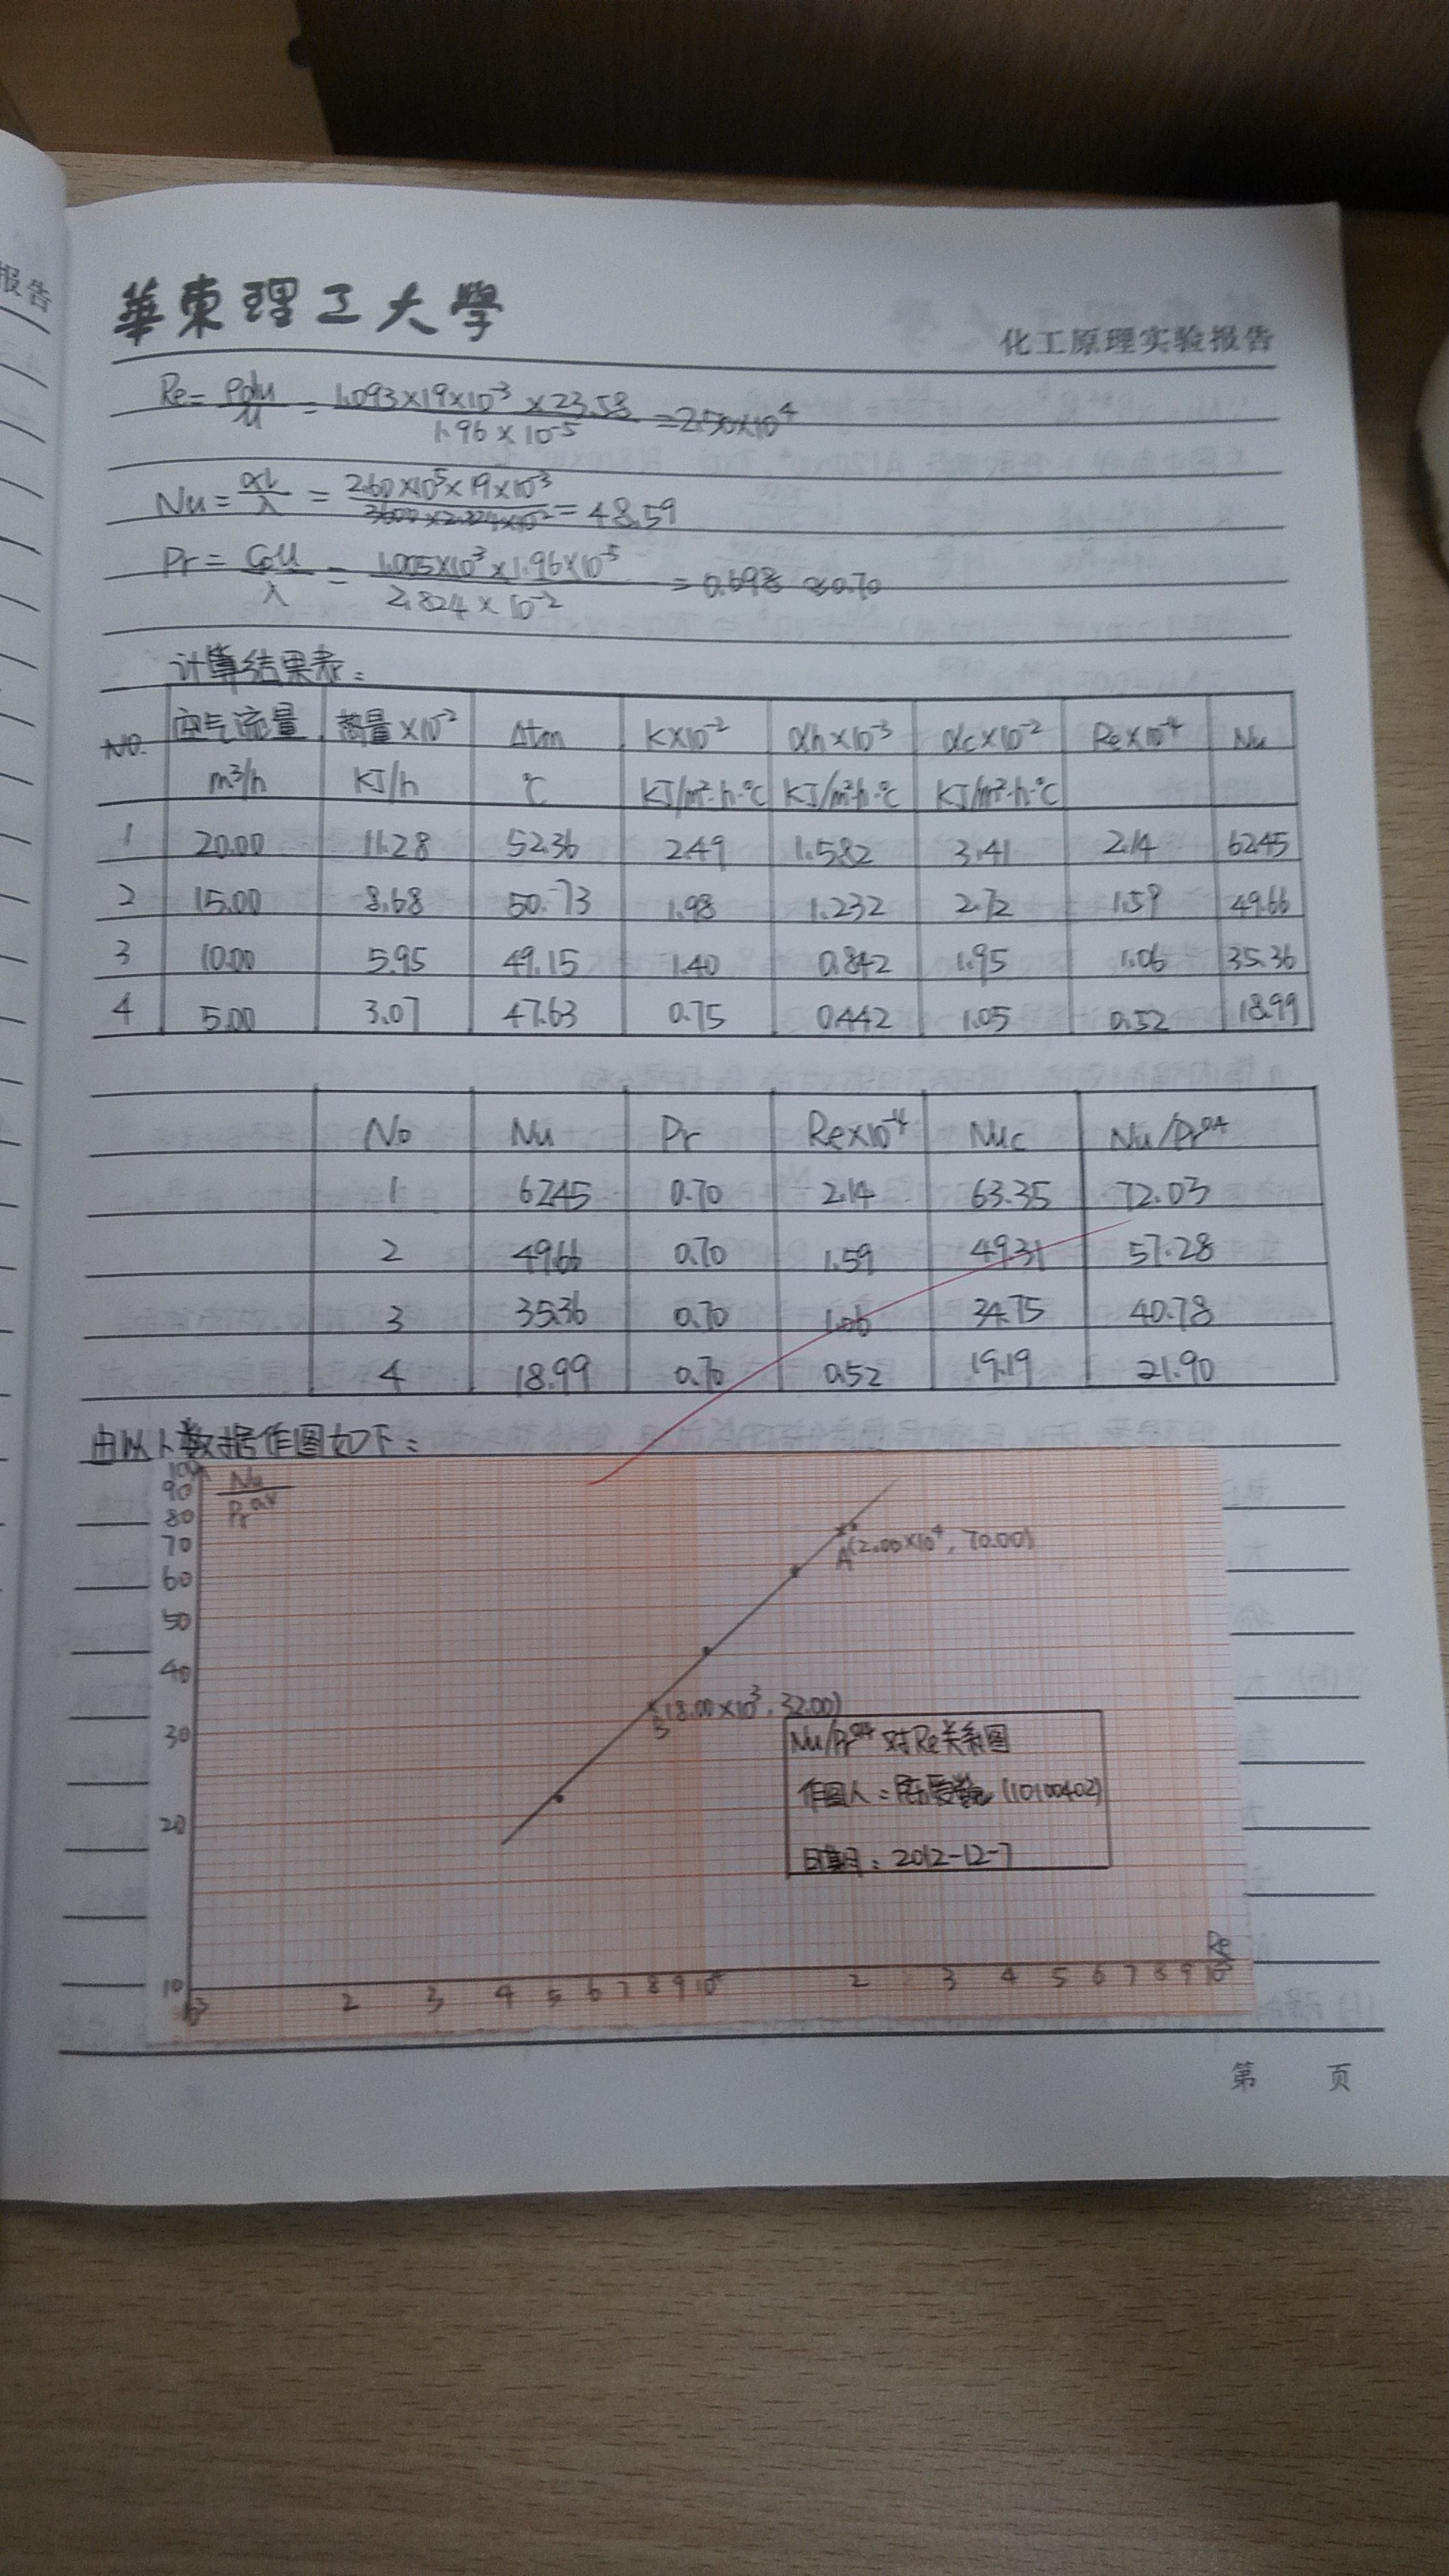 报告
華東理工大學
化工原理实验报告
Re= ρdu/μ = 1.093×19×10⁻³×23.58/1.96×10⁻⁵ =2.50×10⁴
Nu= αl/λ = 260×10⁵×19×10³/3600×2.824×10⁻² = 48.59
Pr= Cpμ/λ = 1.005×10³×1.96×10⁻⁵/2.824×10⁻² = 0.698 ≈0.70
计算结果表:
NO. 空气流量 热量×10⁻² Δtm K×10⁻² αh×10⁻³ αc×10⁻² Re×10⁻⁴ Nu
m³/h KJ/h ℃ KJ/m²·h·℃ KJ/m²·h·℃ KJ/m²·h·℃
1 20.00 11.28 52.36 2.49 1.582 3.41 2.14 62.45
2 15.00 8.68 50.73 1.98 1.232 2.72 1.59 49.66
3 10.00 5.95 49.15 1.40 0.842 1.95 1.06 35.36
4 5.00 3.07 47.63 0.75 0.442 1.05 0.52 18.99
No Nu Pr Re×10⁻⁴ Nuc Nu/Pr⁰·⁴
1 62.45 0.70 2.14 63.35 72.03
2 49.66 0.70 1.59 49.31 57.28
3 35.36 0.70 1.06 34.75 40.78
4 18.99 0.70 0.52 19.19 21.90
由以上数据作图如下:
100
Nu/Pr⁰·⁴
90
80
70
A(2.00×10⁴, 70.00)
60
50
40
B(8.00×10³, 32.00)
30
Nu/Pr⁰·⁴对Re关系图
作图人: (10100402)
20
日期: 2012-12-7
Re
10
10³ 2 3 4 5 6 7 8 9 10⁴ 2 3 4 5 6 7 8 9 10⁵
第 页